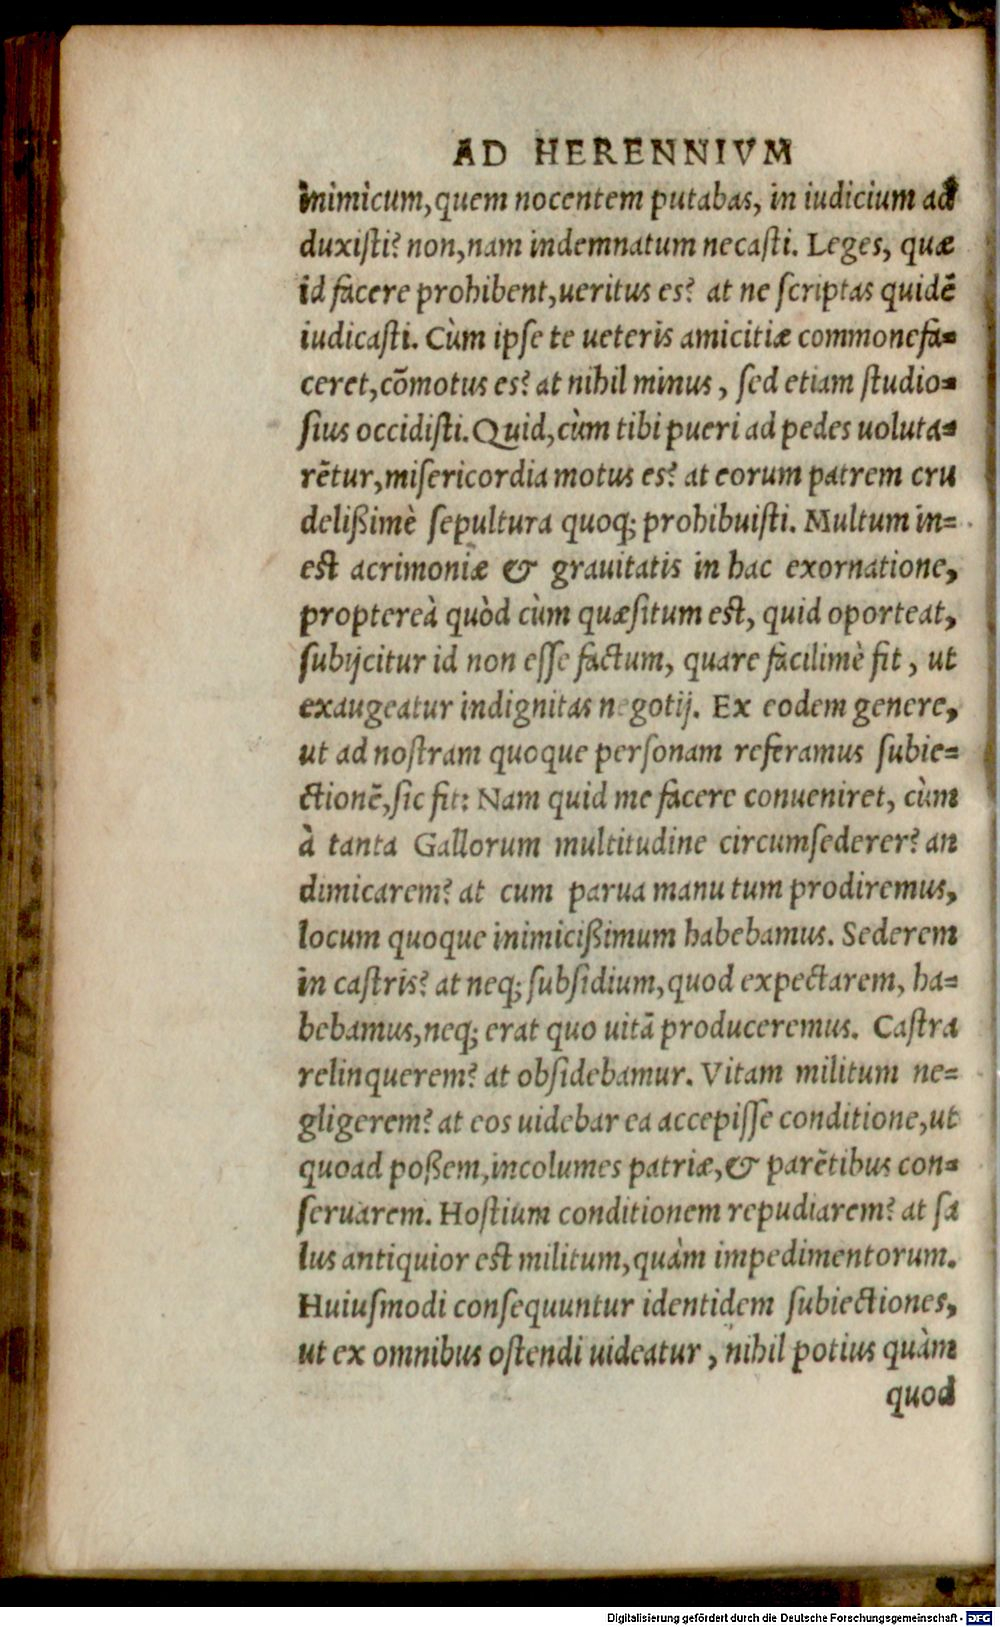 AD HERENNIVM
inimicum, quem nocentem putabas, in iudicium ad
duxiſti? non, nam indemnatum necaſti. Leges, quæ
id facere prohibent, ueritus es? at ne ſcriptas quidē
iudicaſti. Cùm ipſe te ueteris amicitiæ commonefa=
ceret, cōmotus es? at nihil minus, ſed etiam ſtudio=
ſius occidiſti. Quid, cùm tibi pueri ad pedes uoluta=
rētur, miſericordia motus es? at eorum patrem cru
delißimè ſepultura quoq; prohibuiſti. Multum in=
eſt acrimoniæ & grauitatis in hac exornatione,
proptereà quòd cùm quæſitum eſt, quid oporteat,
ſubijcitur id non eſſe factum, quare facilimè fit, ut
exaugeatur indignitas negotij. Ex eodem genere,
ut ad noſtram quoque perſonam referamus ſubie=
ctionē, ſic fit: Nam quid me facere conueniret, cùm
à tanta Gallorum multitudine circumſederer? an
dimicarem? at cum parua manu tum prodiremus,
locum quoque inimicißimum habebamus. Sederem
in caſtris? at neq; ſubſidium, quod expectarem, ha=
bebamus, neq; erat quo uitā produceremus. Caſtra
relinquerem? at obſidebamur. Vitam militum ne=
gligerem? at eos uidebar ea accepiſſe conditione, ut
quoad poßem, incolumes patriæ, & parētibus con=
ſeruarem. Hoſtium conditionem repudiarem? at ſa
lus antiquior eſt militum, quàm impedimentorum.
Huiuſmodi conſequuntur identidem ſubiectiones,
ut ex omnibus oſtendi uideatur, nihil potius quàm
quod
Digitalisierung gefördert durch die Deutsche Forschungsgemeinschaft - DFG